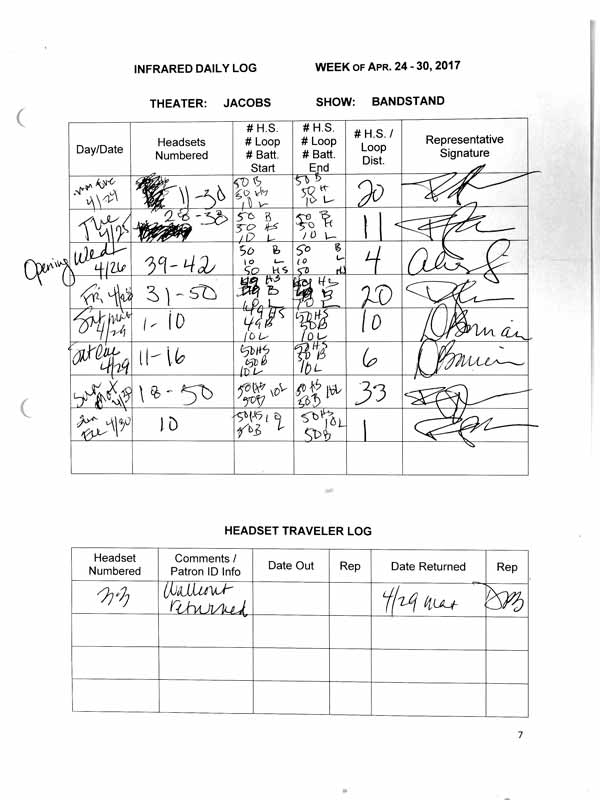 INFRARED DAILY LOG WEEK OF APR. 24 - 30, 2017
THEATER: JACOBS SHOW: BANDSTAND
Day/Date Headsets Numbered # H.S. # Loop # Batt. Start # H.S. # Loop # Batt. End # H.S. / Loop Dist. Representative Signature
Eve 4/24 11-30 50 B 50 HS 10 L 50 B 50 H 10 L 20
Tue 4/25 28-38 50 B 50 HS 10 L 50 B 50 H 10 L 11
Opening Wed 4/26 39-42 50 B 10 L 50 HS 50 B 10 L 50 H 4
Fri 4/28 31-50 49 HS 49 B 10 L HS B 10 L 20
Sat mat 4/29 1-10 49 HS 49 B 10 L 50HS 50B 10L 10
Sat Eve 4/29 11-16 50HS 50B 10L 50HS 50B 10L 6
Sun Mat 4/30 18-50 50HS 10L 50B 50HS 10L 50B 33
Sun Eve 4/30 10 50HS 50B 50HS 10L 50B 1
HEADSET TRAVELER LOG
Headset Numbered Comments / Patron ID Info Date Out Rep Date Returned Rep
33 Walkout returned 4/29 mat
7